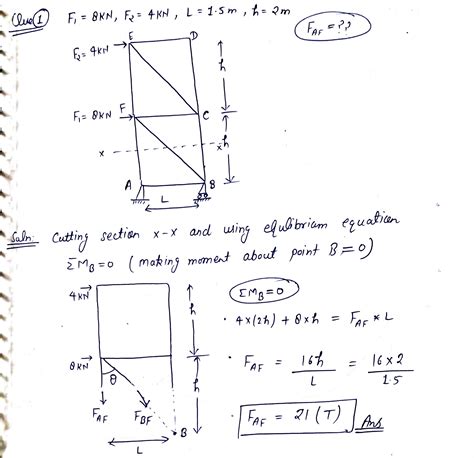 Ques(1) F₁ = 8KN, F₂ = 4KN, L = 1.5m, h = 2m
F_AF = ??
E D
F₂ = 4KN
h
F₁ = 8KN F C
x x h
A B
L
Soln: Cutting section x-x and using equlibriam equation
ΣM_B = 0 (making moment about point B = 0)
4KN
h
ΣM_B = 0
4×(2h) + 8×h = F_AF * L
8KN
θ
h
F_AF = 16h / L = 16×2 / 1.5
F_AF F_BF
B
L
F_AF = 21 (T) Ans